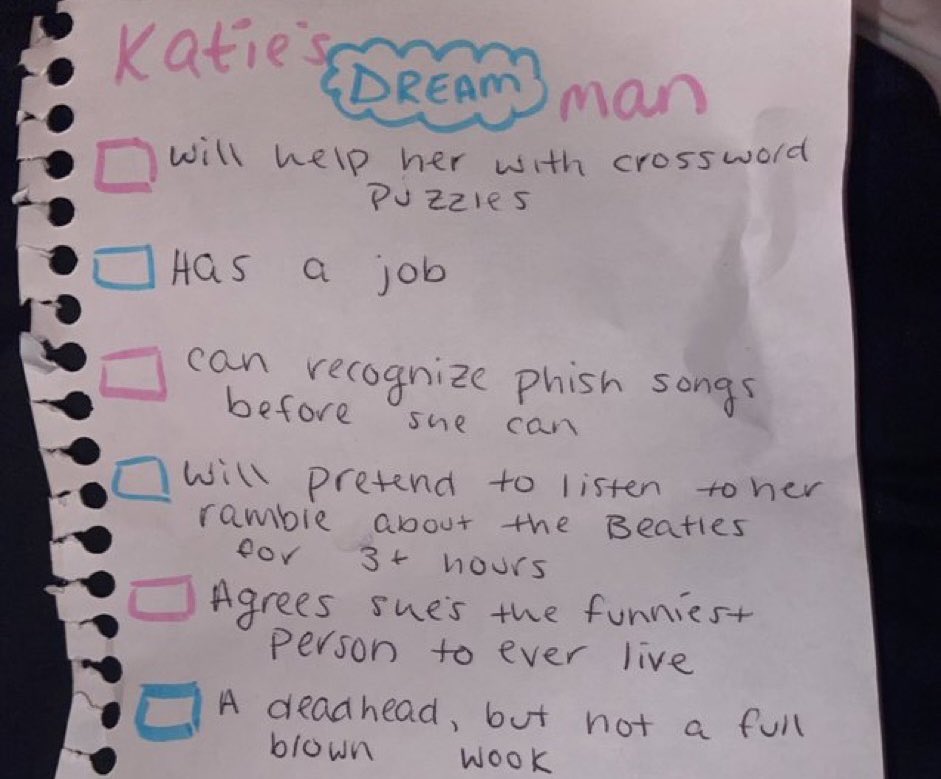 Katie's DREAM man
will help her with crossword
puzzles
Has a job
can recognize phish songs
before she can
will pretend to listen to her
ramble about the Beatles
for 3+ hours
Agrees she's the funniest
person to ever live
A deadhead, but not a full
blown wook